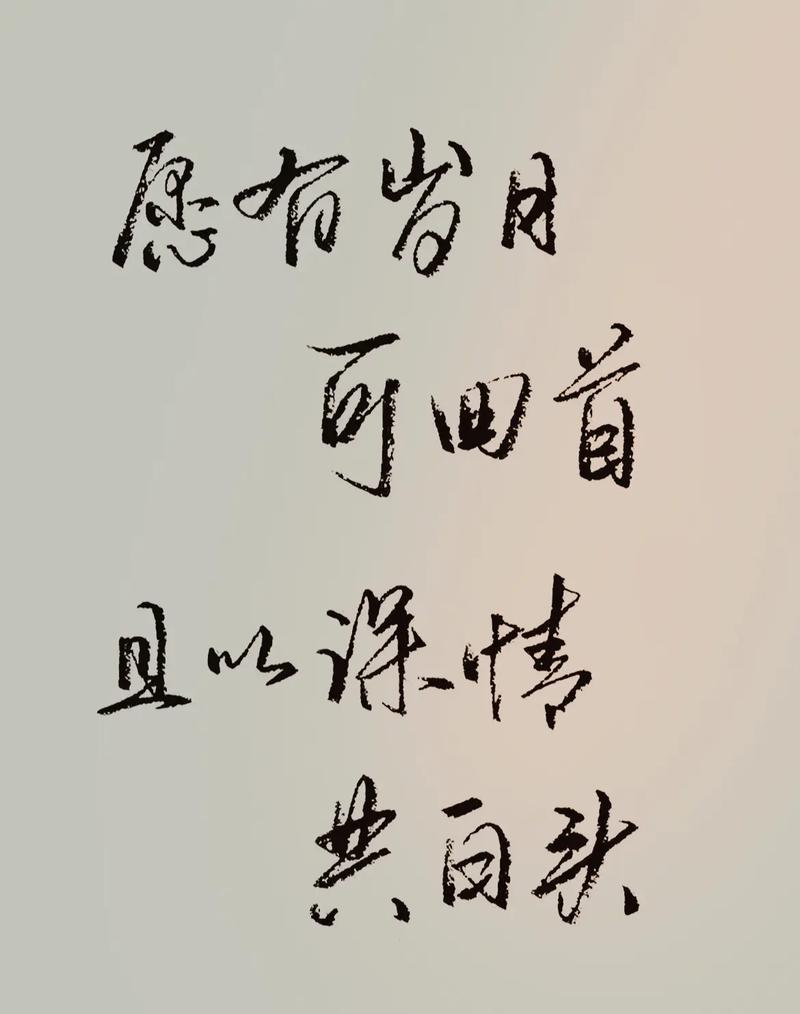 愿有岁月
可回首
且以深情
共白头